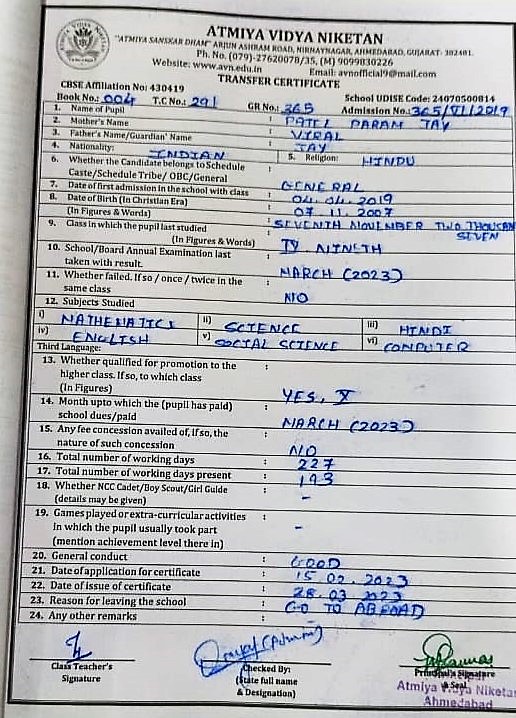 ATMIYA VIDYA NIKETAN
"ATMIYA SANSKAR DHAM" ARJUN ASHRAM ROAD, NIRNAYNAGAR, AHMEDABAD, GUJARAT- 382481.
Ph. No. (079)-27620078/35, (M) 9099830226
Website: www.avn.edu.in Email: avnofficial9@mail.com
TRANSFER CERTIFICATE
CBSE Affiliation No: 430419 School UDISE Code: 24070500814
Book No.: 004 T.C No.: 291 GR No.: 365 Admission No.: 365/VI/2019
1. Name of Pupil : PATEL PARAM JAY
2. Mother's Name : VIRAL
3. Father's Name/Guardian' Name : JAY
4. Nationality: INDIAN 5. Religion: HINDU
6. Whether the Candidate belongs to Schedule
Caste/Schedule Tribe/ OBC/General : GENERAL
7. Date of first admission in the school with class : 04.04.2019
8. Date of Birth (In Christian Era) : 07.11.2007
(In Figures & Words) SEVENTH NOVEMBER TWO THOUSAN
SEVEN
9. Class in which the pupil last studied :
(In Figures & Words) IX NINETH
10. School/Board Annual Examination last
taken with result. : MARCH (2023)
11. Whether failed. If so / once / twice in the
same class : NO
12. Subjects Studied
i) MATHEMATICS ii) SCIENCE iii) HINDI
iv) ENGLISH v) SOCIAL SCIENCE vi) COMPUTER
Third Language:
13. Whether qualified for promotion to the
higher class. If so, to which class
(In Figures) : YES, X
14. Month upto which the (pupil has paid)
school dues/paid : MARCH (2023)
15. Any fee concession availed of, if so, the
nature of such concession : NO
16. Total number of working days : 227
17. Total number of working days present : 193
18. Whether NCC Cadet/Boy Scout/Girl Guide
(details may be given) : -
19. Games played or extra-curricular activities
in which the pupil usually took part
(mention achievement level there in) : -
20. General conduct : GOOD
21. Date of application for certificate : 15.02.2023
22. Date of issue of certificate : 28.03.2023
23. Reason for leaving the school : GO TO ABROAD
24. Any other remarks :
(Admin)
Class Teacher's
Signature
Checked By:
(State full name
& Designation)
Principal's Signature
& Seal
Atmiya Vidya Niketan
Ahmedabad